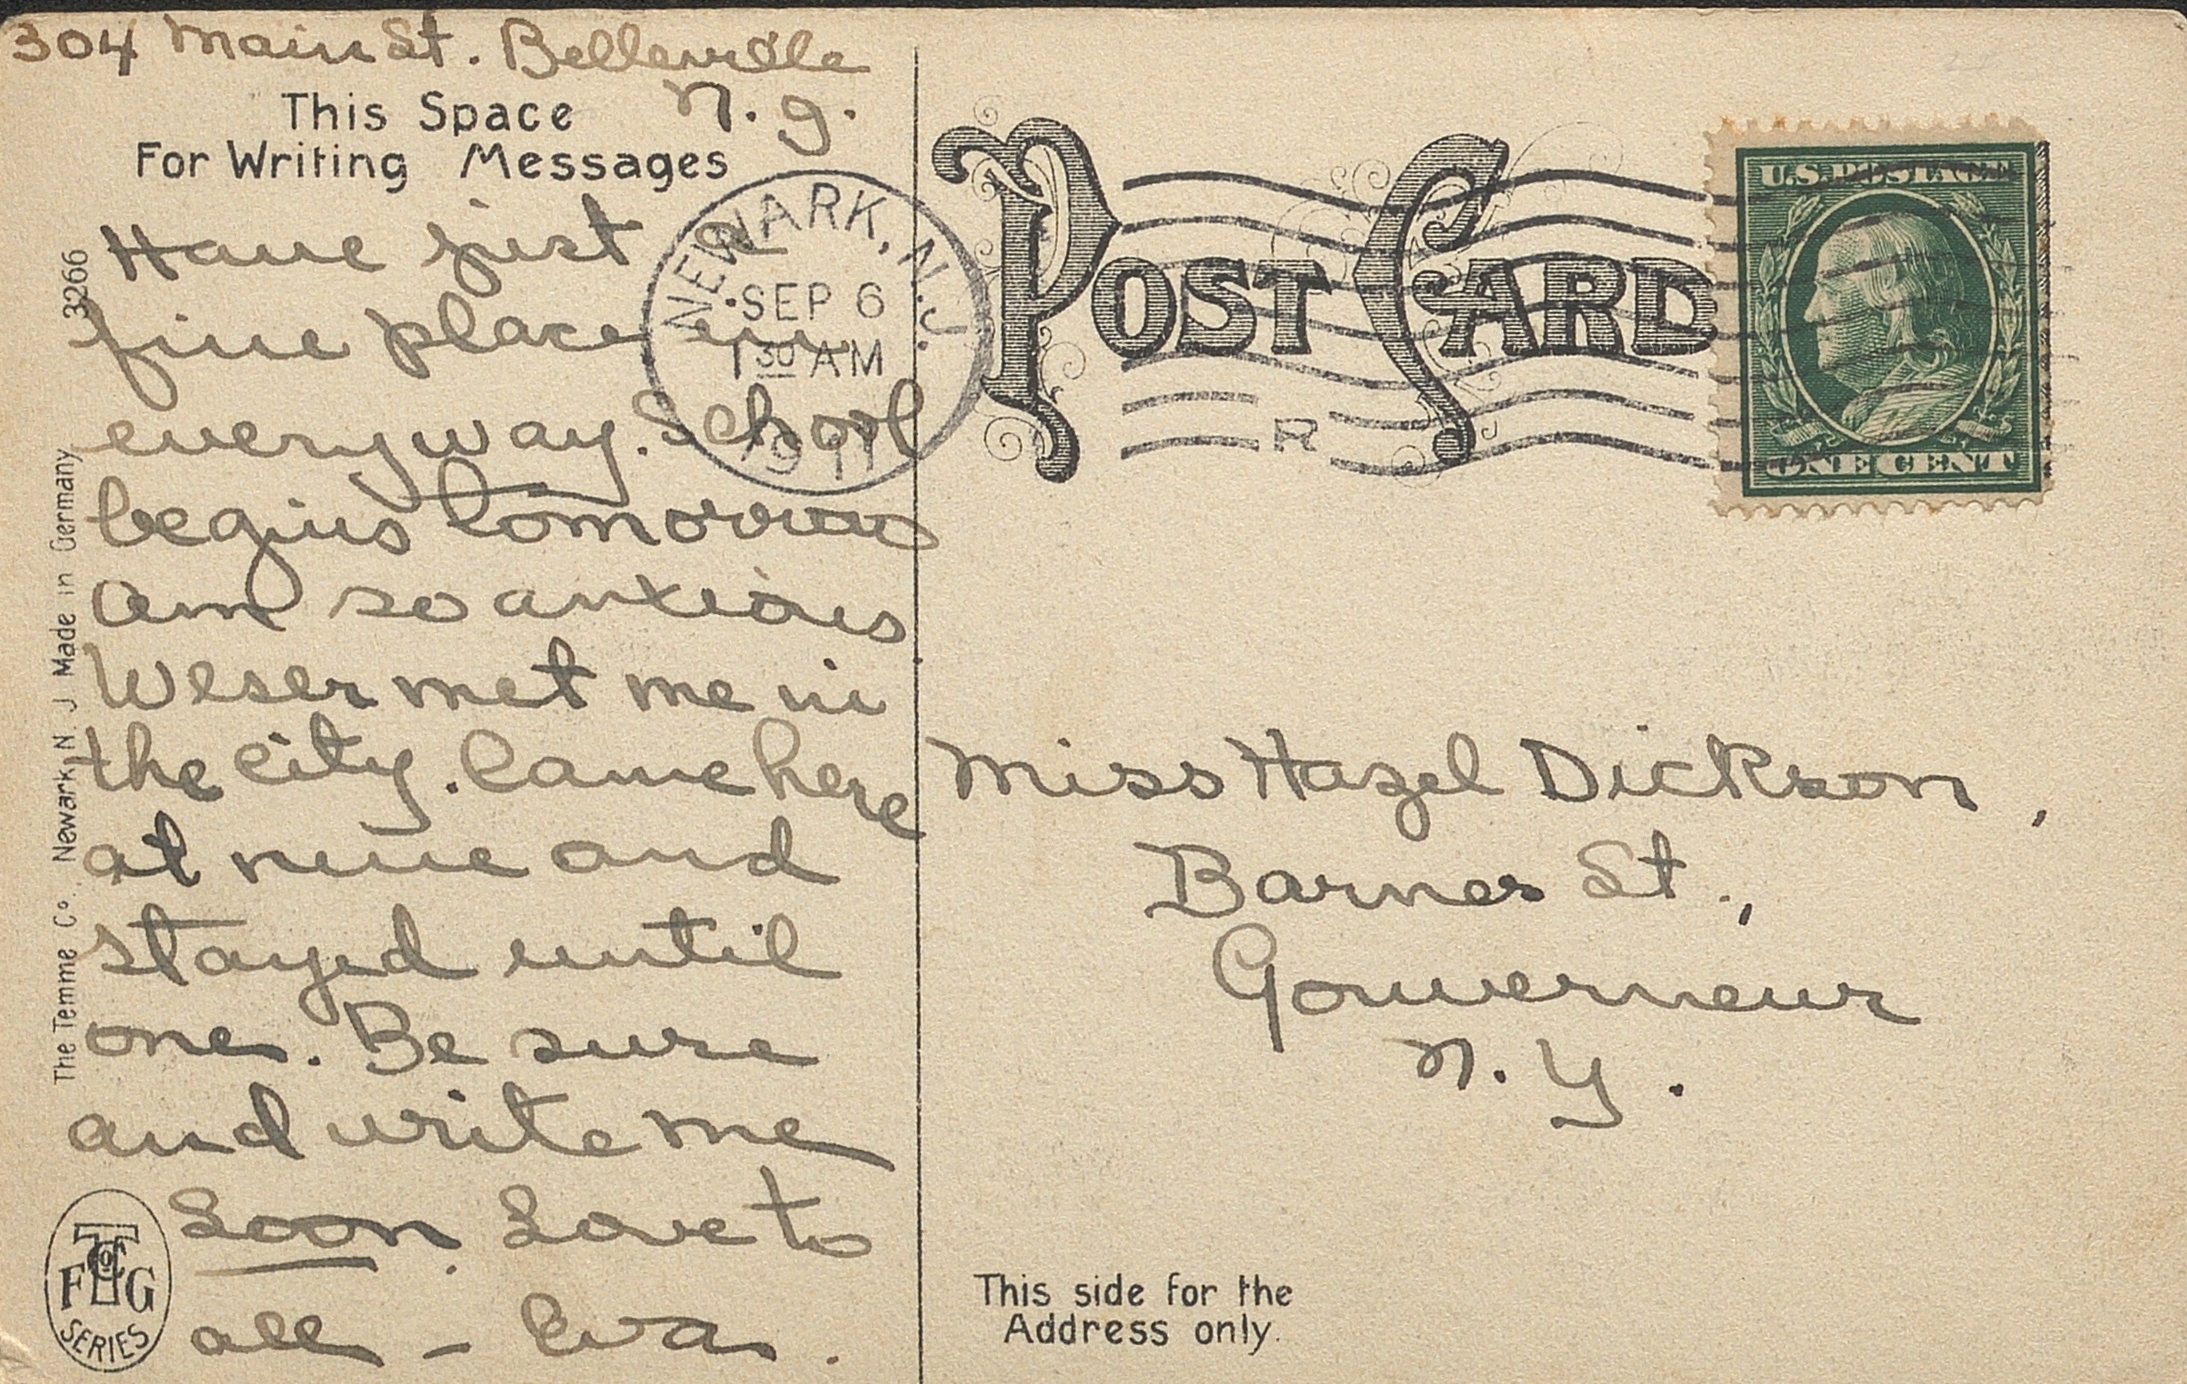 304 Main St. Belleville
N. J.
This Space
For Writing Messages
Have just a
fine place in
everyway. School
begins tomorrow
am so anxious.
Weser met me in
the city. Came here
at nine and
stayed until
one. Be sure
and write me
soon. Love to
all – Eva.
3266
The Temme Co. Newark, N. J. Made in Germany
T Co
F G
SERIES
NEWARK, N.J.
SEP 6
1 30 AM
1911
POST CARD
R
U.S. POSTAGE
ONE CENT
Miss Hazel Dickson,
Barnes St.,
Gouverneur
N. Y.
This side for the
Address only.